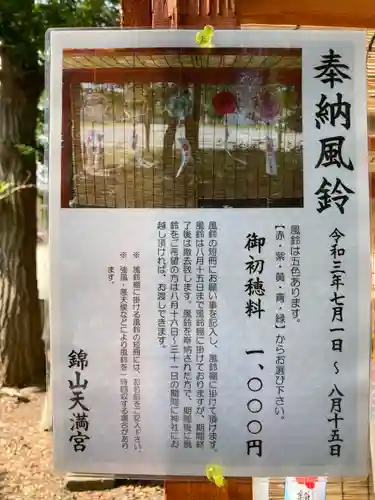 奉納風鈴
令和三年七月一日 ～ 八月十五日
風鈴は五色あります。
【赤・紫・黄・青・緑】からお選び下さい。
御初穂料 一、〇〇〇円
風鈴の短冊にお願い事を記入し、風鈴棚に掛けて頂きます。
風鈴は八月十五日まで風鈴棚に掛けておりますが、期間終
了後は撤去致します。風鈴を奉納された方で、期間後に風
鈴をご希望の方は八月十六日～三十一日の期間に神社にお
越し頂ければ、お渡しできます。
※ 風鈴棚に掛ける風鈴の短冊には、お名前をご記入下さい。
※ 強風・荒天候などにより風鈴を一時収納する場合があり
ます。
錦山天満宮